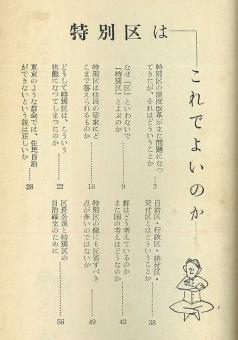 特別区は
これでよいのか
特別区の制度改革がまた問題になっ
てきたが、それはどういうことか
2
なぜ「区」といわないで
「特別区」とよぶのか
9
特別区は住民の要求にど
こまで答えられるものか
16
どうして特別区は、こういう
状態になってしまったのか
22
東京のような都会では、住民自治
ができないという説は正しいか
28
自治区・行政区・納付区・
交付区とはどういうことか
38
都はどう考えているのか
また国の考えはどうなのか
42
特別区の側にも反省すべき
点が多いのではないか
49
区長公選と特別区の
自治確立のために
56